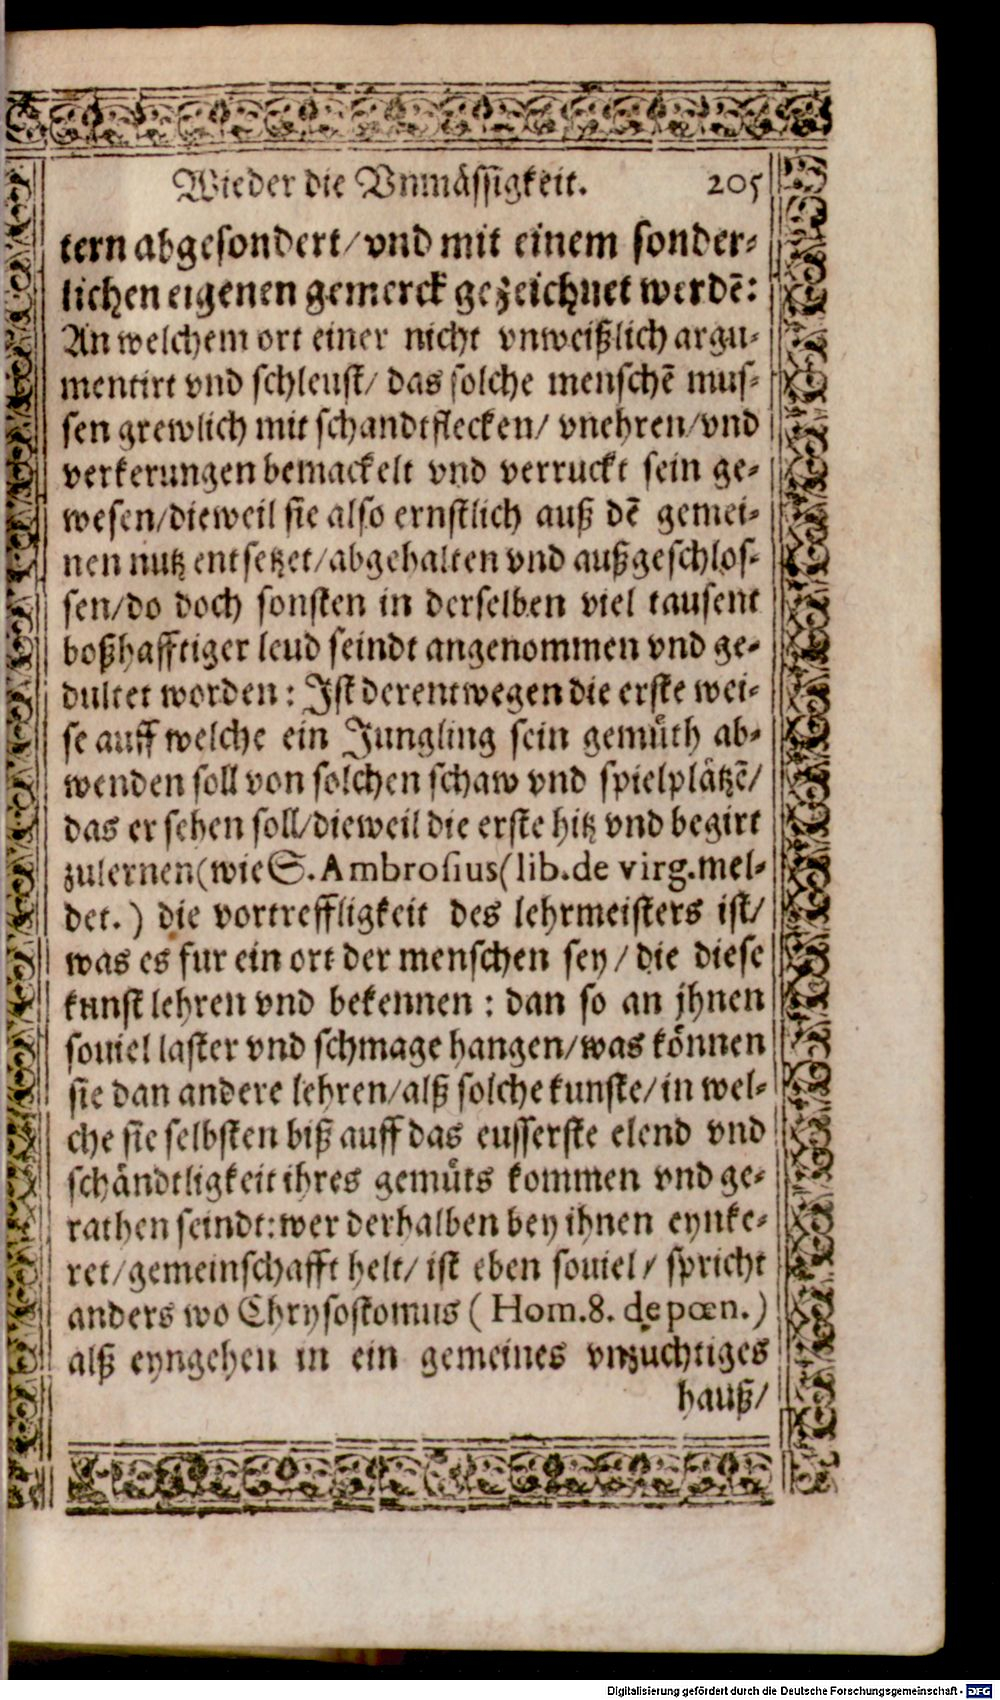 Wieder die Vnmässigkeit. 205
tern abgesondert/ vnd mit einem sonder-
lichen eigenen gemerck gezeichnet werdē:
An welchem ort einer nicht vnweißlich argu-
mentirt vnd schleust/ das solche menschē mus-
sen grewlich mit schandtflecken/ vnehren/vnd
verkerungen bemackelt vnd verruckt sein ge-
wesen/dieweil sie also ernstlich auß dē gemei-
nen nutz entsetzet/abgehalten vnd außgeschlos-
sen/do doch sonsten in derselben viel tausent
boßhafftiger leud seindt angenommen vnd ge-
dultet worden: Ist derentwegen die erste wei-
se auff welche ein Jungling sein gemuͤth ab-
wenden soll von solchen schaw vnd spielplätzē/
das er sehen soll/dieweil die erste hitz vnd begirt
zulernen(wie S. Ambrosius(lib.de virg.mel-
det.) die vortreffligkeit des lehrmeisters ist/
was es fur ein ort der menschen sey/ die diese
kunst lehren vnd bekennen: dan so an jhnen
souiel laster vnd schmage hangen/was können
sie dan andere lehren/alß solche kunste/in wel-
che sie selbsten biß auff das eusserste elend vnd
schändtligkeit ihres gemuͤts kommen vnd ge-
rathen seindt:wer derhalben bey ihnen eynke-
ret/gemeinschafft helt/ ist eben souiel/ spricht
anders wo Chrysostomus (Hom.8. de pœn.)
alß eyngehen in ein gemeines vnzuchtiges
hauß/
Digitalisierung gefördert durch die Deutsche Forschungsgemeinschaft - DFG